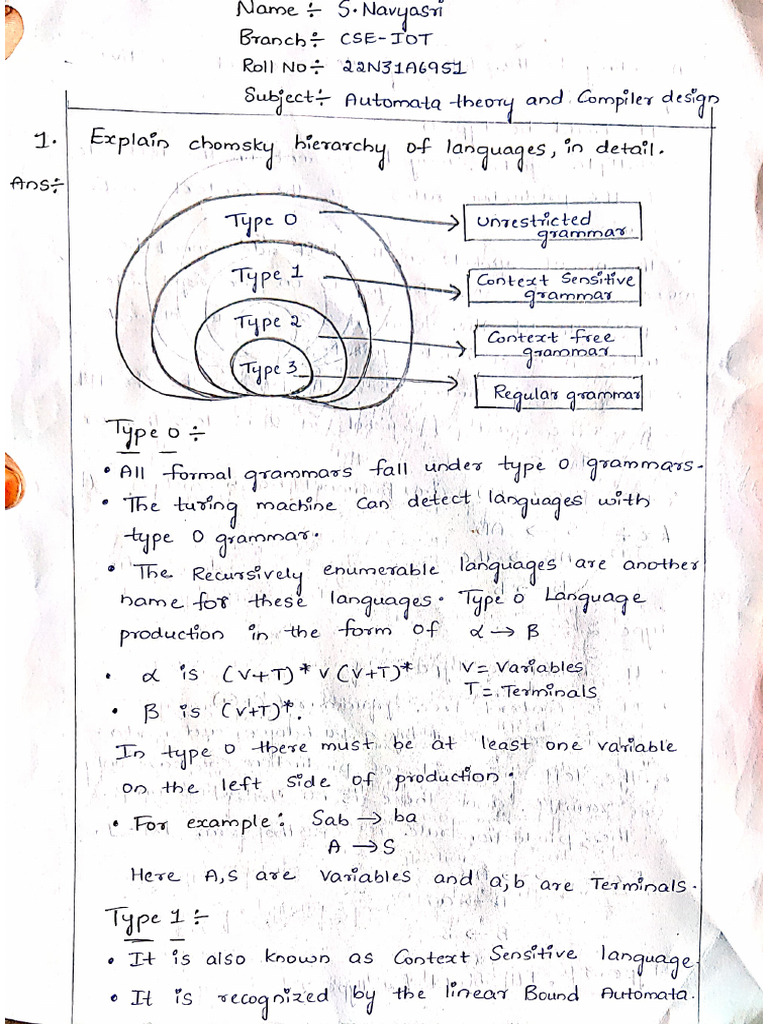 Name ÷ S. Navyasri
Branch ÷ CSE-IOT
Roll No ÷ 22N31A6951
Subject ÷ Automata theory and Compiler design
1. Explain chomsky hierarchy of languages, in detail.
Ans ÷
Type 0
Unrestricted
grammar
Type 1
Context Sensitive
grammar
Type 2
Context free
grammar
Type 3
Regular grammar
Type 0 ÷
• All formal grammars fall under type 0 grammars.
• The turing machine can detect languages with
type 0 grammar.
• The Recursively enumerable languages are another
name for these languages. Type 0 Language
production in the form of α → β
• α is (V+T)* V (V+T)* V = Variables
T = Terminals
• β is (V+T)*.
In type 0 there must be at least one variable
on the left side of production.
• For example: Sab → ba
A → S
Here A,S are variables and a,b are Terminals.
Type 1 ÷
• It is also known as Context Sensitive language.
• It is recognized by the linear Bound Automata.